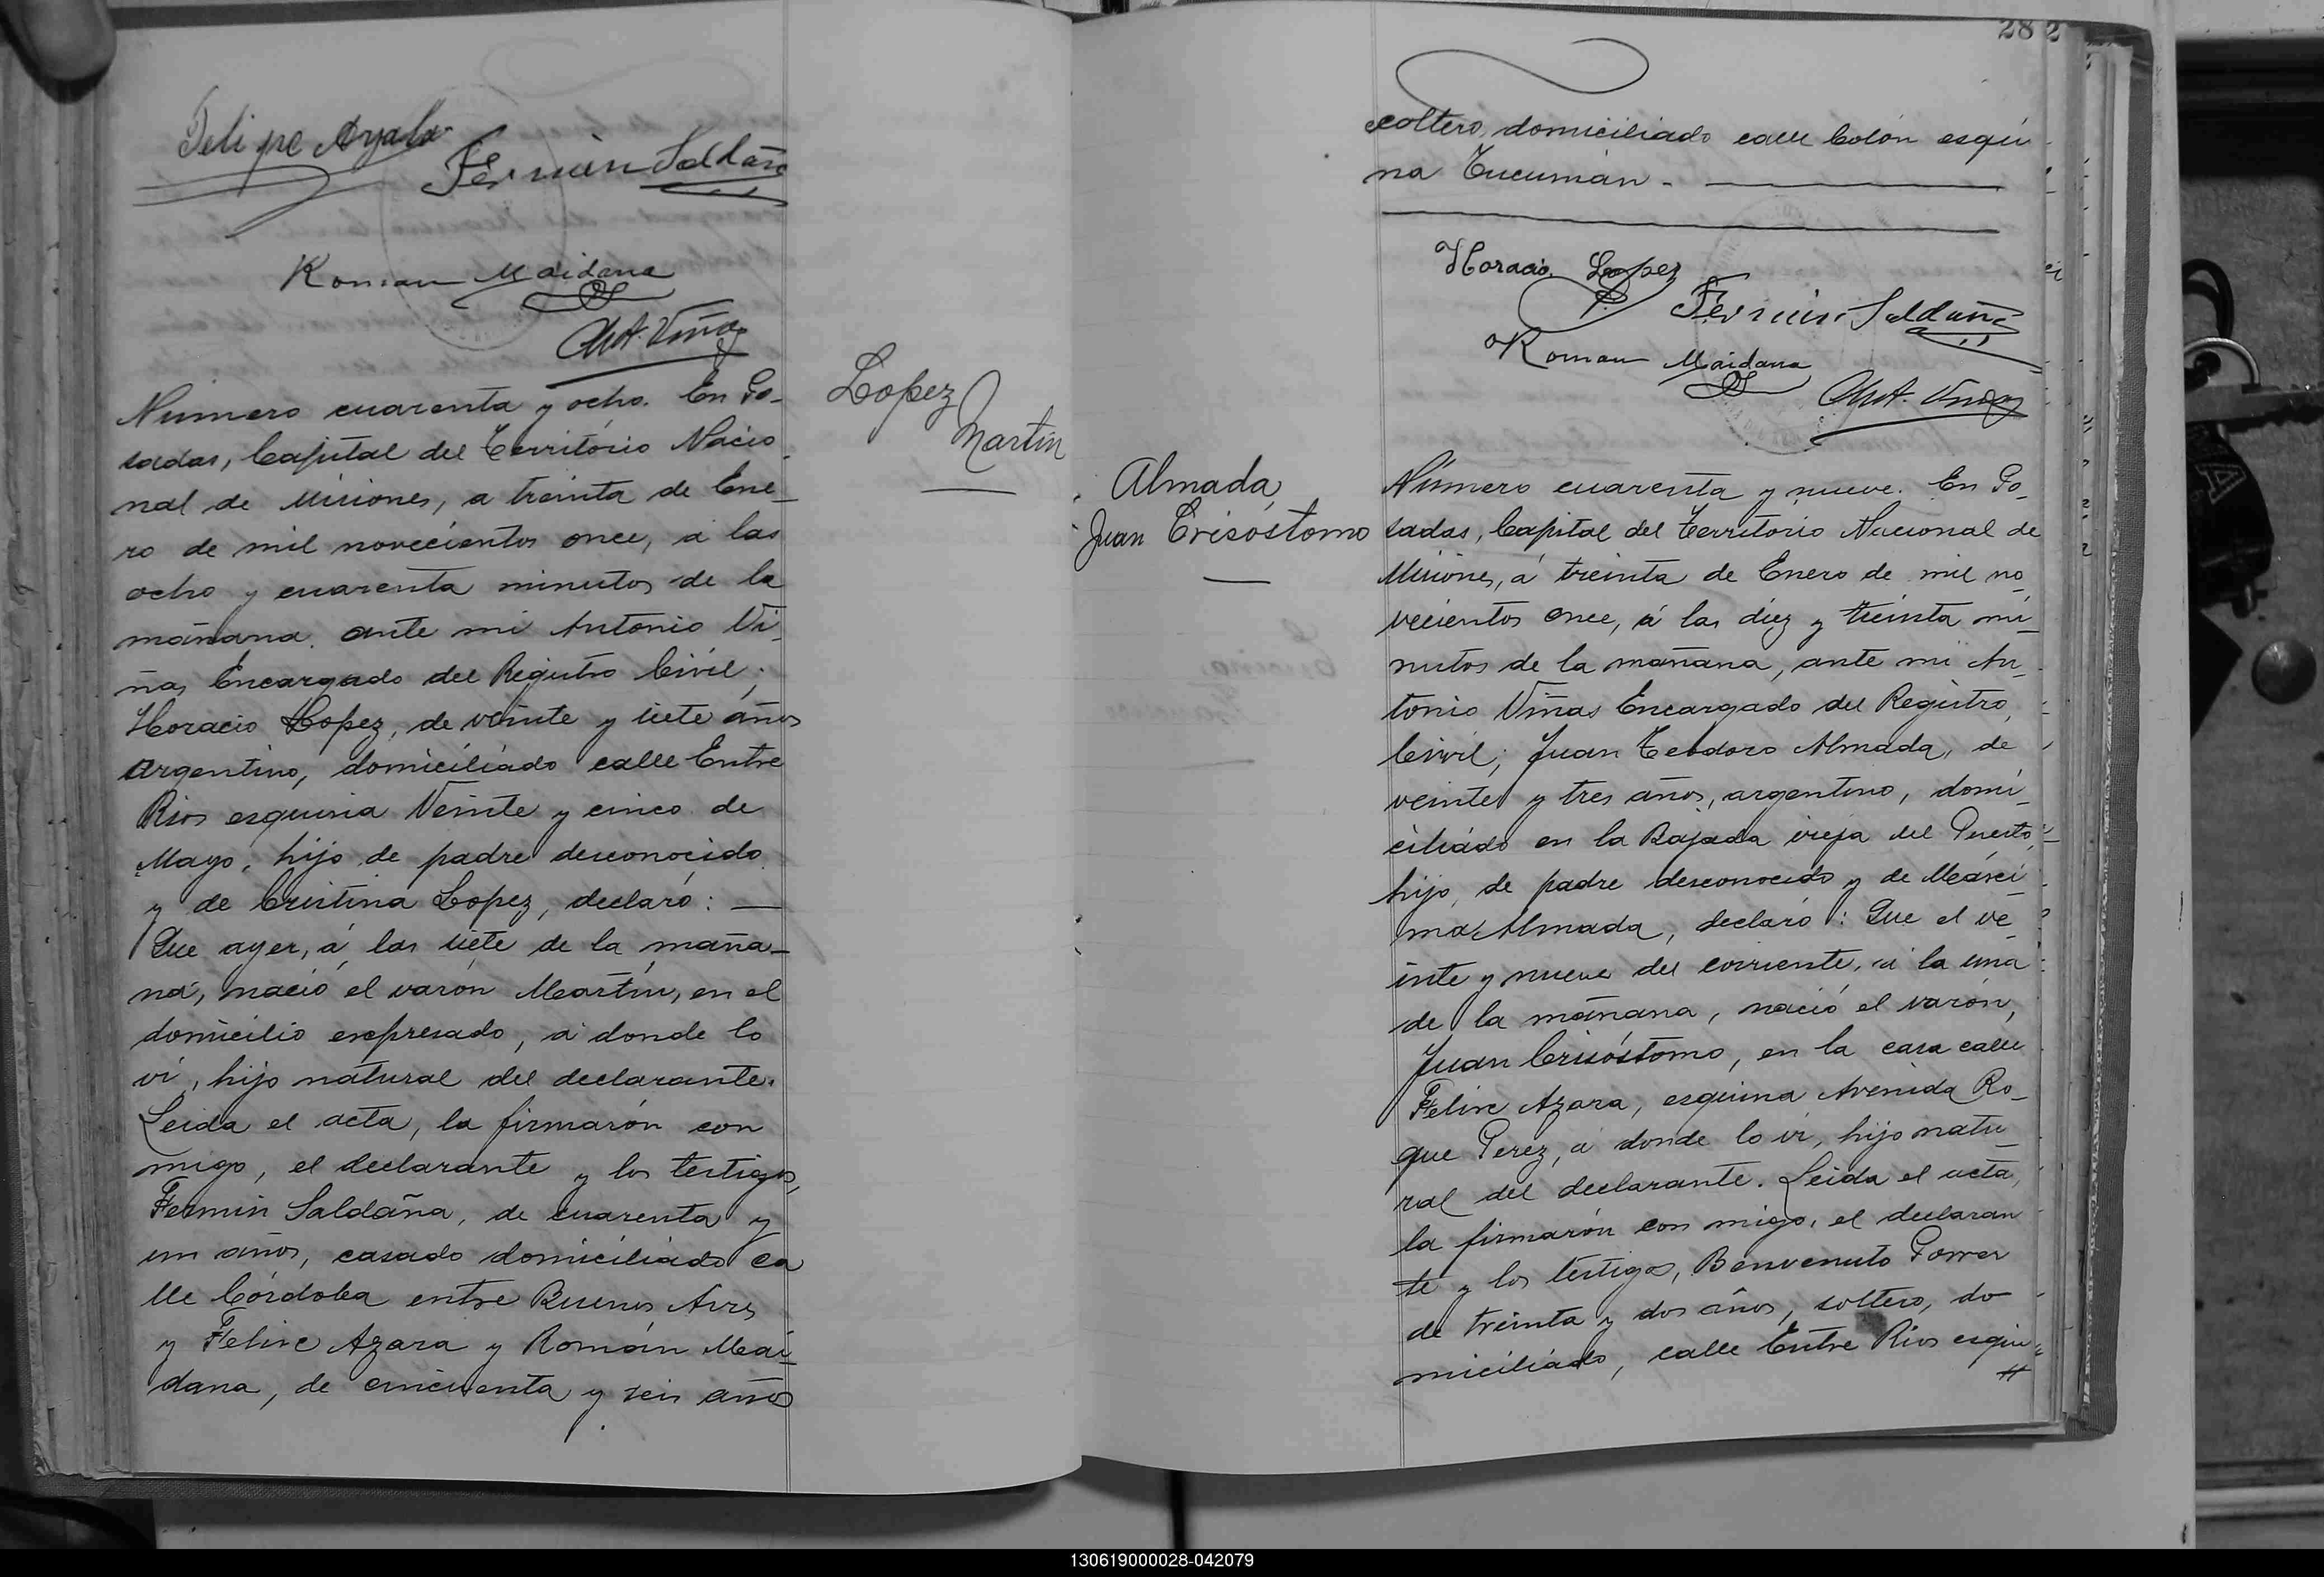 Felipe Ayala
Fermin Saldaña
Roman Maidana
Ant. Viñas
Lopez
Martin
Número cuarenta y ocho. En Po-
sadas, Capital del Territorio Nacio-
nal de Misiones, a treinta de Ene-
ro de mil novecientos once, á las
ocho y cuarenta minutos de la
mañana. ante mi Antonio Vi-
ñas Encargado del Registro Civil;
Horacio Lopez, de veinte y siete años
argentino, domiciliado calle Entre
Rios esquina Veinte y cinco de
Mayo, hijo de padre desconocido
y de Cristina Lopez, declaró: —
Que ayer, á las siete de la maña-
na, nació el varón Martín, en el
domicilio expresado, á donde lo
ví, hijo natural del declarante.
Leida el acta, la firmarón con
migo, el declarante y los testigos,
Fermin Saldaña, de cuarenta y
un años, casado domiciliado ca
lle Córdoba entre Buenos Aires
y Felix Azara y Román Mai-
dana, de cincuenta y seis años
282
soltero, domiciliado calle Colón esqui
na Tucumán. —
Horacio Lopez
Fermin Saldaña
Roman Maidana
Ant. Viñas
Almada,
Juan Crisóstomo
Número cuarenta y nueve. En Po-
sadas, Capital del Territorio Nacional de
Misiones, á treinta de Enero de mil no-
vecientos once, á las diez y treinta mi-
nutos de la mañana, ante mi An-
tonio Viñas Encargado del Registro
Civil; Juan Teodoro Almada, de
veinte y tres años, argentino, domi-
ciliado en la Bajada vieja del Puerto,
hijo, de padre desconocido y de Márci-
ma Almada, declaró: Que el ve-
inte y nueve del corriente, á la una
de la mañana, nació el varón,
Juan Crisóstomo, en la casa calle
Felix Azara, esquina Avenida Ro-
que Perez, á donde lo ví, hijo natu-
ral del declarante. Leida el acta,
la firmarón con migo, el declaran
te y los testigos, Benvenuto Porrer
de treinta y dos años, soltero, do
miciliado, calle Entre Rios esqui-
130619000028-042079